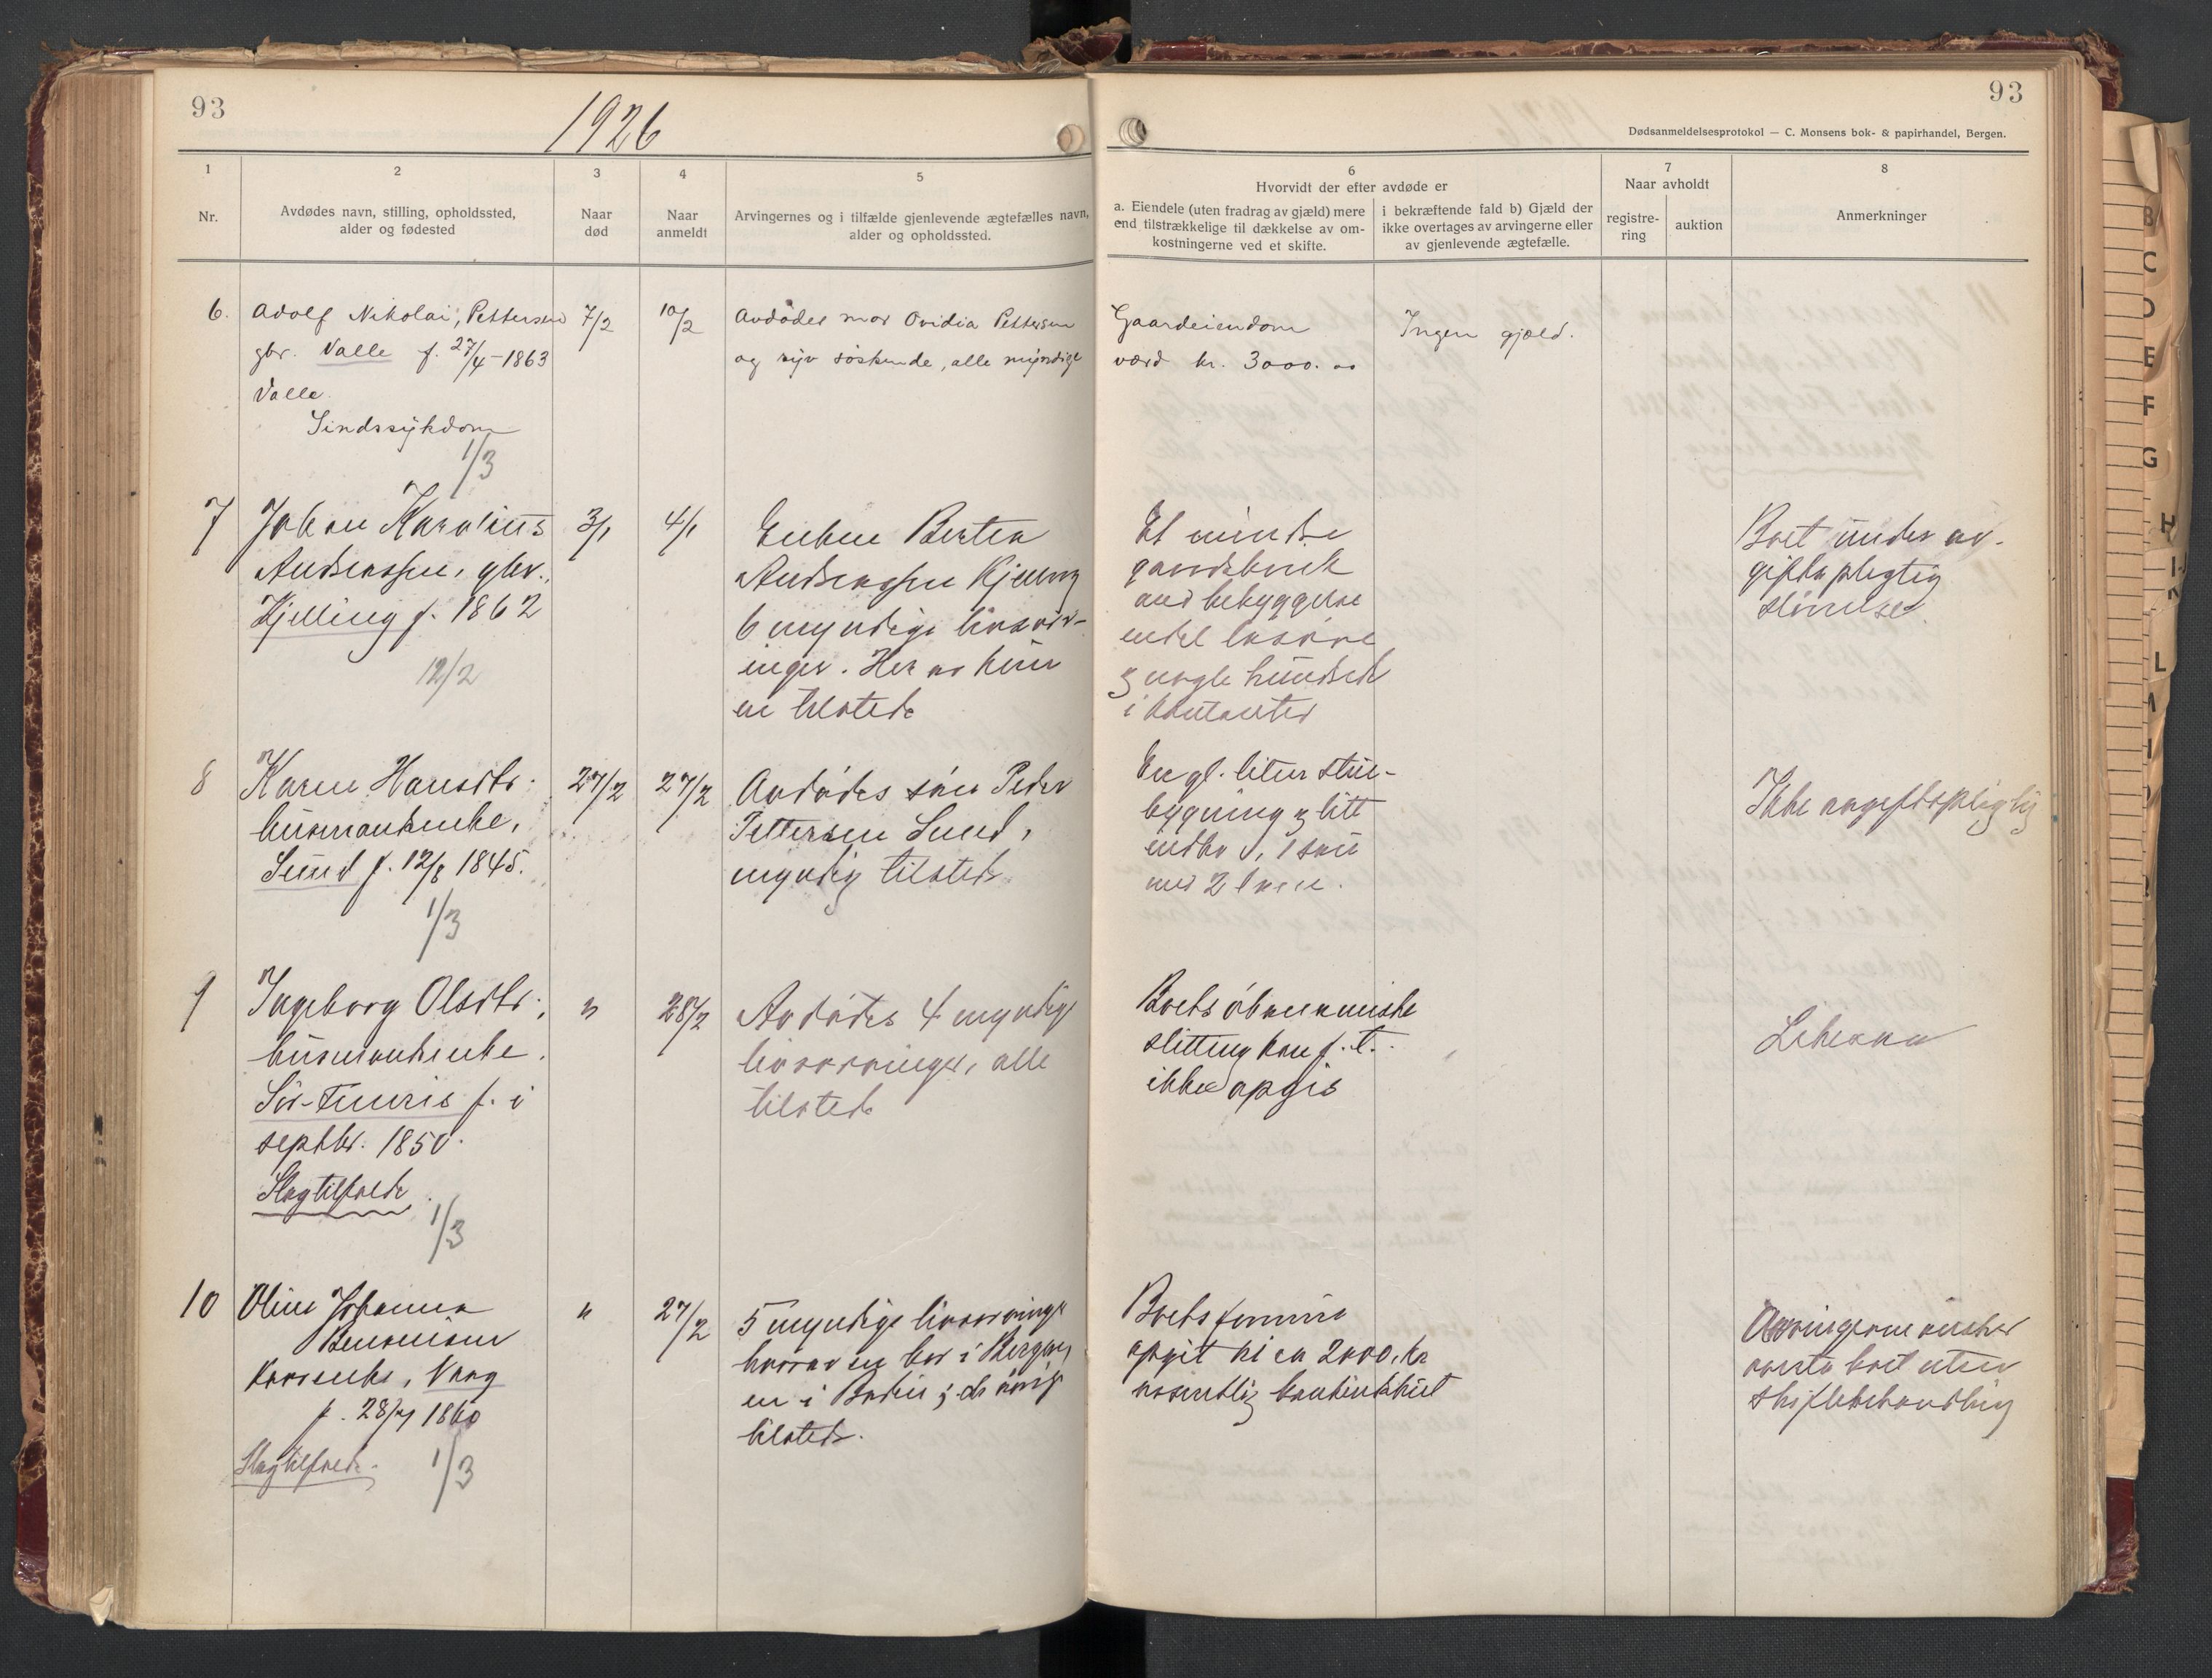 93
1926
93
Dødsanmeldelsesprotokol — C. Monsens bok- & papirhandel, Bergen.
1
Nr.
2
Avdødes navn, stilling, opholdssted,
alder og fødested
3
Naar
død
4
Naar
anmeldt
5
Arvingernes og i tilfælde gjenlevende ægtefælles navn,
alder og opholdssted.
6
Hvorvidt der efter avdøde er
a. Eiendele (uten fradrag av gjæld) mere
end tilstrækkelige til dækkelse av om-
kostningerne ved et skifte.
i bekræftende fald b) Gjæld der
ikke overtages av arvingerne eller
av gjenlevende ægtefælle.
7
Naar avholdt
registre-
ring
auktion
8
Anmerkninger
6.
Adolf Nikolai, Pettersen
gbr. Valle f. 27/4-1863
Valle.
Sindssykdom
1/3
7/2
10/2
Avdødes mor Ovidia Pettersen
og syv søskende, alle myndige
Gaardeiendom
værd kr. 3000.00
Ingen gjæld.
7
Johan Karolius
Andreassen, gbr.,
Kjelling f. 1862
12/2
3/1
4/1
Enken Berten
Andreassen Kjelling
6 myndige livsarv-
inger. Her av kun
en tilstede
Et mindre
gaardsbruk
med bebyggelse
endel løsøre
og nogle hundrede
i kontanter
Boet under av-
giftspligtig
størrelse.
8
Karen Hansdtr.
husmankenke,
Sund f. 12/8 1845.
1/3
27/2
27/2
Avdødes søn Peder
Pettersen Sund,
myndig tilstede
En gl. liten stue-
bygning og litt
indbo, 1 sau
med 2 lam.
Ikke avgiftspligtig
9
Ingeborg Olsdtr.,
husmankenke.
Sør-Finnvis f. i
septbr. 1850.
Slagtilfælde
1/3
"
28/2
Avdødes 4 myndige
livsarvinger, alle
tilstede
Boets økonomiske
stilling kan f. t.
ikke opgis
10
Oline Johanna
Benonisen
kaarenke, Vaag
f. 28/7 1860
Slagtilfælde.
1/3
"
27/2
5 myndige livsarvinge
hvorav en bor i Bergen,
en i Bodin; de øvrige
tilstede.
Boets formue
opgit til ca 2000. kr
væsentlig bankindskud
Arvingerne ønsker
overta boet uten
skiftebehandling
B
C
D
E
F
G
H
L